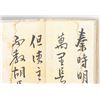 秦時明
萬里長
但使
不教胡